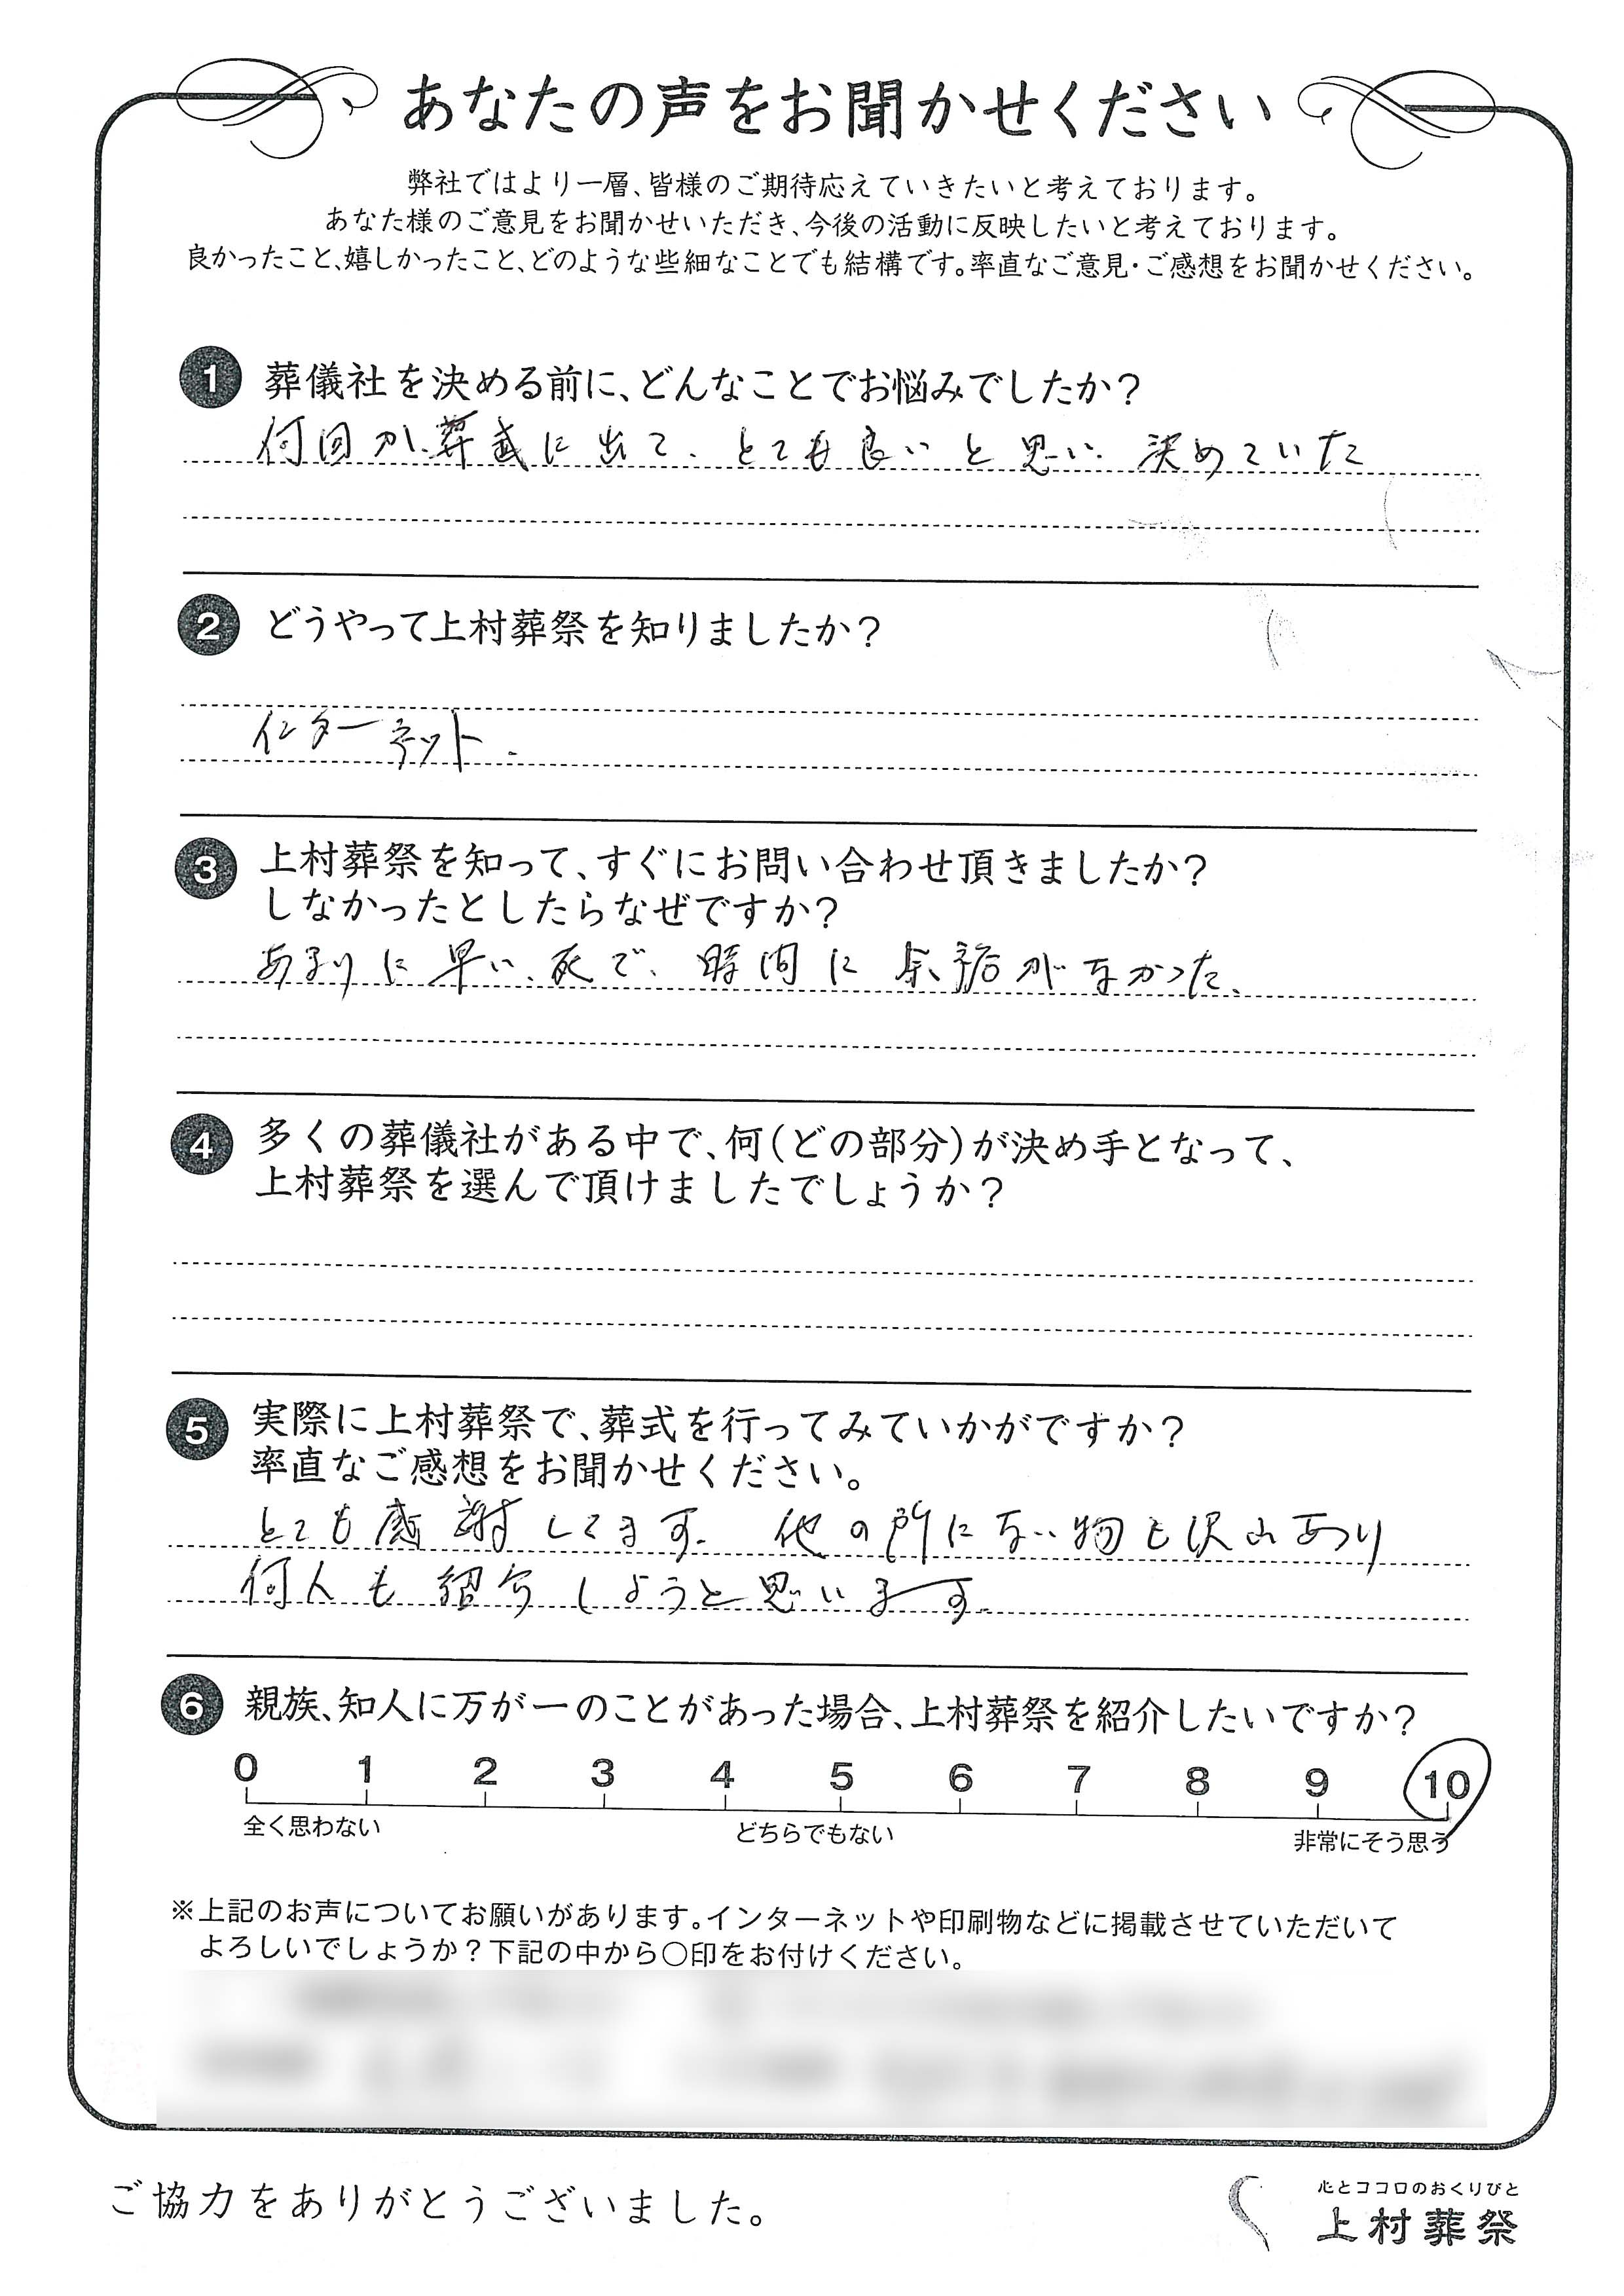 あなたの声をお聞かせください
弊社ではより一層、皆様のご期待応えていきたいと考えております。
あなた様のご意見をお聞かせいただき、今後の活動に反映したいと考えております。
良かったこと、嬉しかったこと、どのような些細なことでも結構です。率直なご意見・ご感想をお聞かせください。
1 葬儀社を決める前に、どんなことでお悩みでしたか？
何回か、葬式に出て、とても良いと思い、決めていた
2 どうやって上村葬祭を知りましたか？
インターネット.
3 上村葬祭を知って、すぐにお問い合わせ頂きましたか？
しなかったとしたらなぜですか？
あまりに早い、死で、時間に余裕がなかった、
4 多くの葬儀社がある中で、何（どの部分）が決め手となって、
上村葬祭を選んで頂けましたでしょうか？
5 実際に上村葬祭で、葬式を行ってみていかがですか？
率直なご感想をお聞かせください。
とても感謝してます。他の所にない物も沢山あり
何人も紹介しようと思います。
6 親族、知人に万が一のことがあった場合、上村葬祭を紹介したいですか？
0 1 2 3 4 5 6 7 8 9 10
全く思わない どちらでもない 非常にそう思う
※上記のお声についてお願いがあります。インターネットや印刷物などに掲載させていただいて
よろしいでしょうか？下記の中から○印をお付けください。
ご協力をありがとうございました。
心とココロのおくりびと
上村葬祭